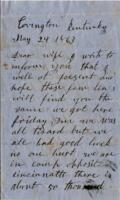 Covington Kentucky
May 24 1863
Dear wife I write to
inform you that I
well at present and
hope these few lines
will find you the
same we got here
friday one
all
had good luck
no one hurt we are
in camp opposite
cincinnatti there is
about 50 thousand